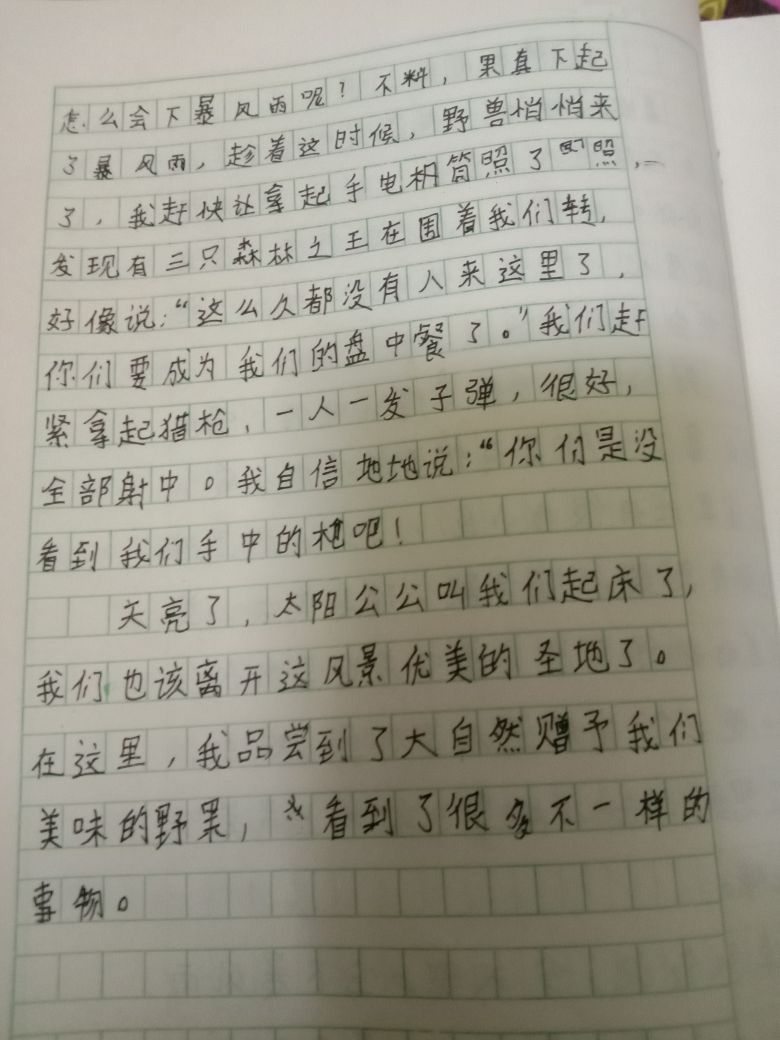 怎么会下暴风雨呢？不料，果真下起
了暴风雨，趁着这时候，野兽悄悄来
了，我赶快让拿起手电枬筒照了照，
发现有三只森林之王在围着我们转，
好像说：“这么久都没有人来这里了，
你们要成为我们的盘中餐了。”我们赶
紧拿起猎枪，一人一发子弹，很好，
全部射中。我自信地地说：“你们是没
看到我们手中的枪吧！
天亮了，太阳公公叫我们起床了，
我们也该离开这风景优美的圣地了。
在这里，我品尝到了大自然赠予我们
美味的野果，看到了很多不一样的
事物。